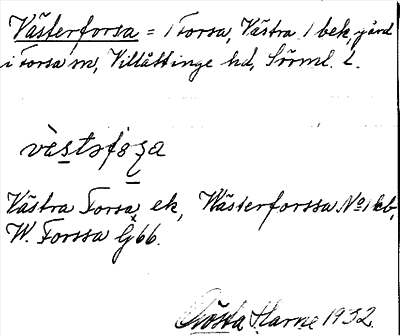 Västerforsa = 1 Forsa, Västra 1 bek, gård
i Forsa sn, Villåttinge hd, Sörml. L.
Västra Forsa, ek, Wästerforssa No 1 kb,
W. Forssa Gj 66.
Gösta Harne 1932